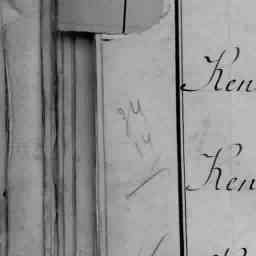 Ken
24
14
Ken